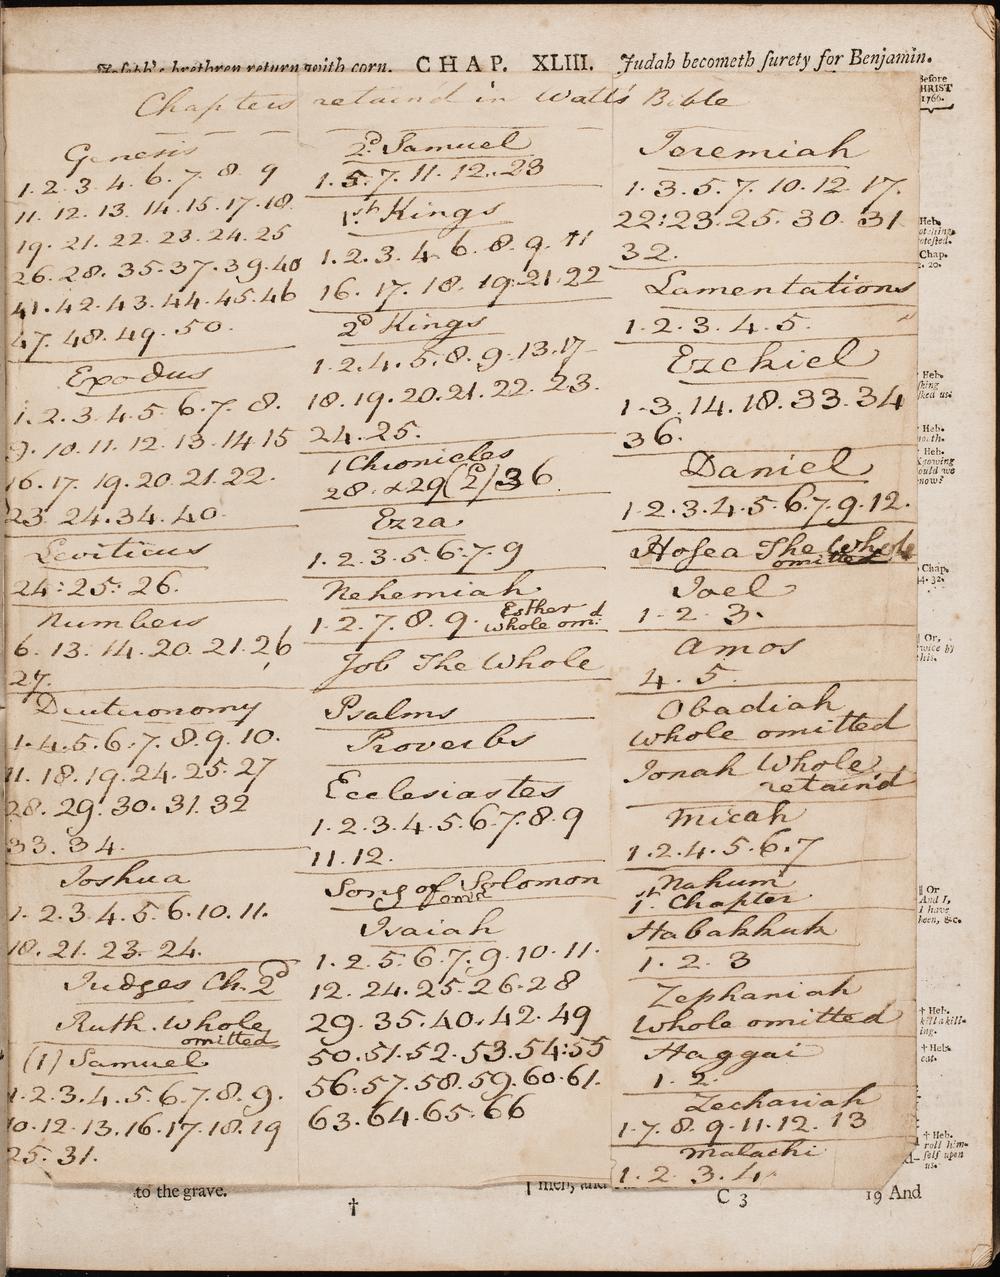 Joseph's brethren return with corn. CHAP. XLIII. Judah becometh surety for Benjamin.
Before
CHRIST
1766.
Chapters retain'd in Watt's Bible
Genesis
1. 2. 3. 4. 6. 7. 8. 9
11. 12. 13. 14. 15. 17. 18.
19. 21. 22. 23. 24. 25
26. 28. 35. 37. 39. 40
41. 42. 43. 44. 45. 46
47. 48. 49. 50.
Exodus
1. 2. 3. 4. 5. 6. 7. 8.
9. 10. 11. 12. 13. 14. 15
16. 17. 19. 20. 21. 22.
23. 24. 34. 40.
Leviticus
24: 25: 26.
Numbers
6. 13. 14. 20. 21. 26
27.
Deuteronomy
1. 4. 5. 6. 7. 8. 9. 10.
11. 18. 19. 24. 25. 27
28. 29. 30. 31. 32
33. 34.
Joshua
1. 2. 3. 4. 5. 6. 10. 11.
18. 21. 23. 24.
Judges Ch. 2d
Ruth. Whole
omitted
(1) Samuel
1. 2. 3. 4. 5. 6. 7. 8. 9.
10. 12. 13. 16. 17. 18. 19
25. 31.
2d Samuel
1. 5. 7. 11. 12. 23
1st Kings
1. 2. 3. 4. 6. 8. 9. 11
16. 17. 18. 19. 21. 22
2d Kings
1. 2. 4. 5. 8. 9. 13. 17
18. 19. 20. 21. 22. 23.
24. 25.
1 Chronicles
28. & 29 (2) 36
Ezra
1. 2. 3. 5. 6. 7. 9
Nehemiah
1. 2. 7. 8. 9. Esther
whole om:d
Job The Whole
Psalms
Proverbs
Ecclesiastes
1. 2. 3. 4. 5. 6. 7. 8. 9
11. 12.
Song of Solomon
Isaiah
1. 2. 5. 6. 7. 9. 10. 11.
12. 24. 25. 26. 28
29. 35. 40. 42. 49
50. 51. 52. 53. 54: 55
56. 57. 58. 59. 60. 61.
63. 64. 65. 66
Jeremiah
1. 3. 5. 7. 10. 12. 17.
22: 23. 25. 30. 31
32.
Lamentations
1. 2. 3. 4. 5.
Ezekiel
1. 3. 14. 18. 33. 34
36.
Daniel
1. 2. 3. 4. 5. 6. 7. 9. 12.
Hosea The Whole
omitted
Joel
1. 2. 3.
Amos
4. 5.
Obadiah
whole omitted
Jonah Whole
retain'd
Micah
1. 2. 4. 5. 6. 7
Nahum
1st Chapter
Habakkuk
1. 2. 3
Zephaniah
Whole omitted
Haggai
1. 2.
Zechariah
1. 7. 8. 9. 11. 12. 13
Malachi
1. 2. 3. 4.
Heb.
Chap.
Heb.
Heb.
Heb.
Chap.
44. 32.
|| Or,
|| Or
And I,
† Heb.
† Heb.
† Heb.
roll him-
self upon
us.
to the grave.
men, and
†
C 3
19 And